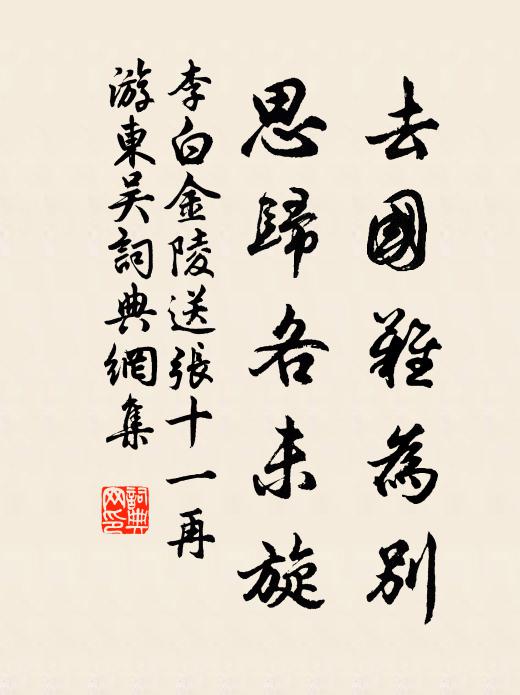 去國難為別
思歸各未旋
李白金陵送張十一再
游東吴詞典網集
詞典
网印